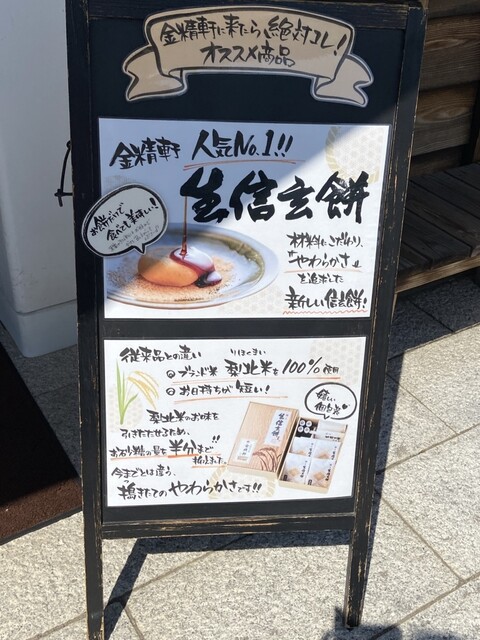 金精軒に来たら、絶対コレ!
オススメ商品
金精軒 人気No.1!!
生信玄餅
お餅だけで
食べても美味しい!
材料にこだわり、
"やわらかさ"
を追求した
新しい信玄餅!
従来品との違い
りほくまい
①ブランド米 梨北米を100%使用
②お日持ちが短い!
梨北米のお味を
引きたたせるため、
お砂糖の量を半分まで
抑えました!!
今までとは違う、
搗きたてのやわらかさです!!
嬉しい
個包装
生信玄餅